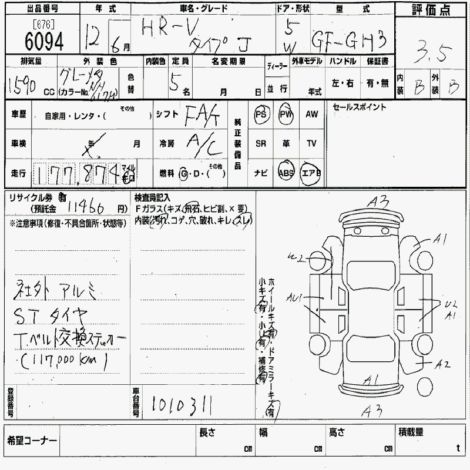 出品番号 年式 車名・グレード ドア・形状 型式 評価点
[676]
6094 12年 6月 HR-V タイプJ 5 W GF-GH3 3.5
排気量 外装色 内装色 定員 名変期限 ディーラー 外車モデル ハンドル 保証書 内装 外装
1590 CC グレーメタ (カラーNo. NH 色替 5名 月 日 並行 年式 左・右 有・無 B B
車歴 自家用・レンタ・(その他) シフト FA/T 純正装備品 PS PW AW セールスポイント
車検 年 月 冷房 A/C SR 革 TV
走行 177,874 マイル キロ 燃料 G・D・(その他) ナビ ABS エアB
リサイクル券 有
(預託金 11460 円)
※注意事項(修復・不具合箇所・状態等)
検査員記入
Fガラス(キズ、飛石、ヒビ割、×要)
内装(汚れ、コゲ、穴、破れ、キレ、スレ)
社外アルミ
STタイヤ
T.ベルト交換ステッカー
(117,000km)
小キズ(有)・小凹(有)・補修(有)
ホイールキズ(有)・ドアミラーキズ(有)
A3
A1
U2
AU1
U2
A1
A2
A1
A3
登録番号 車台番号 1010311
希望コーナー 長さ cm 幅 cm 高さ cm 積載量 t